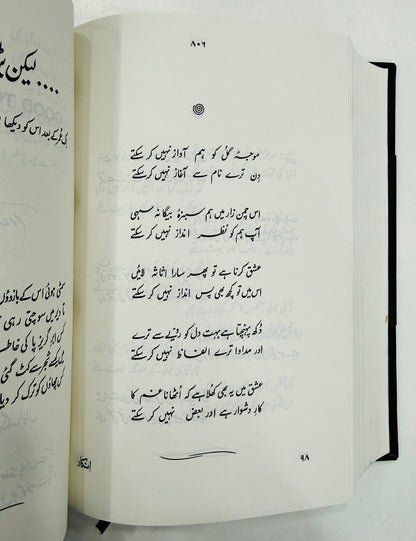 ۸۰۶
موجۂ گُل کو ہم آواز نہیں کر سکتے
دِن ترے نام سے آغاز نہیں کر سکتے
اس چمن زار میں ہم سبزۂ بیگانہ سہی
آپ ہم کو نظر انداز نہیں کر سکتے
عشق کرنا ہے تو پھر سارا اثاثہ لائیں
اس میں تو کچھ بھی پس انداز نہیں کر سکتے
دُکھ پہنچتا ہے بہت دل کو رویّے سے ترے
اور مداوا ترے الفاظ نہیں کر سکتے
عشق میں یہ بھی کھُلا ہے کہ اُٹھانا غم کا
کارِ دشوار ہے اور بعض نہیں کر سکتے
۹۸
انکار
....لیکن
کے بعد اس کو دیکھا
ہوئی اس کے بازوؤں
میں سوچتی رہی
کو ترک کر دیا